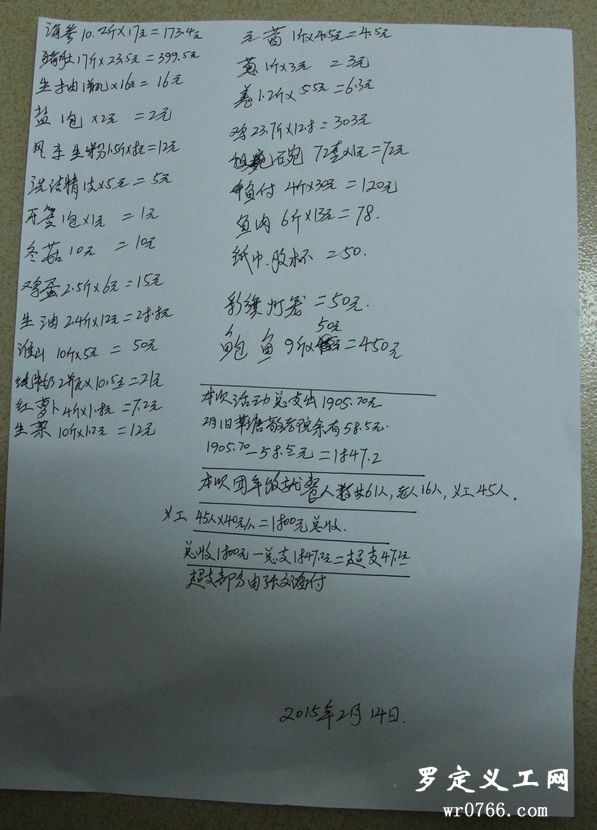 海参10.2斤×17元=173.4元
17斤×23.5元=399.5元
生抽1瓶×16元=16元
盐1包×2元=2元
风车生粉1.5斤×8元=12元
洗洁精1×5元=5元
牙签1包×1元=1元
冬菇10元=10元
鸡蛋2.5斤×6元=15元
生油2.4斤×12元=28.8元
淮山10斤×5元=50元
×10.5元=21元
红萝卜4斤×1.8元=7.2元
生菜10斤×1.2元=12元
1斤×4.5元=4.5元
葱1斤×3元=3元
姜1.2斤×5.5元=6.3元
鸡23.7斤×12.8=303元
碗72套×1元=72元
4斤×30元=120元
鱼肉6斤×13元=78.
纸巾.胶杯=50.
彩缘灯笼=50元.
50元
鲍鱼9斤×=450元
本次活动总支出1905.70元
2月1日敬老院余有58.5元.
1905.70-58.5元=1847.2
本次团年饭就餐人数共61人,老人16人,义工45人.
义工45人×40元/人=1800元总收.
总收1800元-总支1847.2元=超支47.2元
超支部分由张付
2015年2月14日.
罗定义工网
wr0766.com